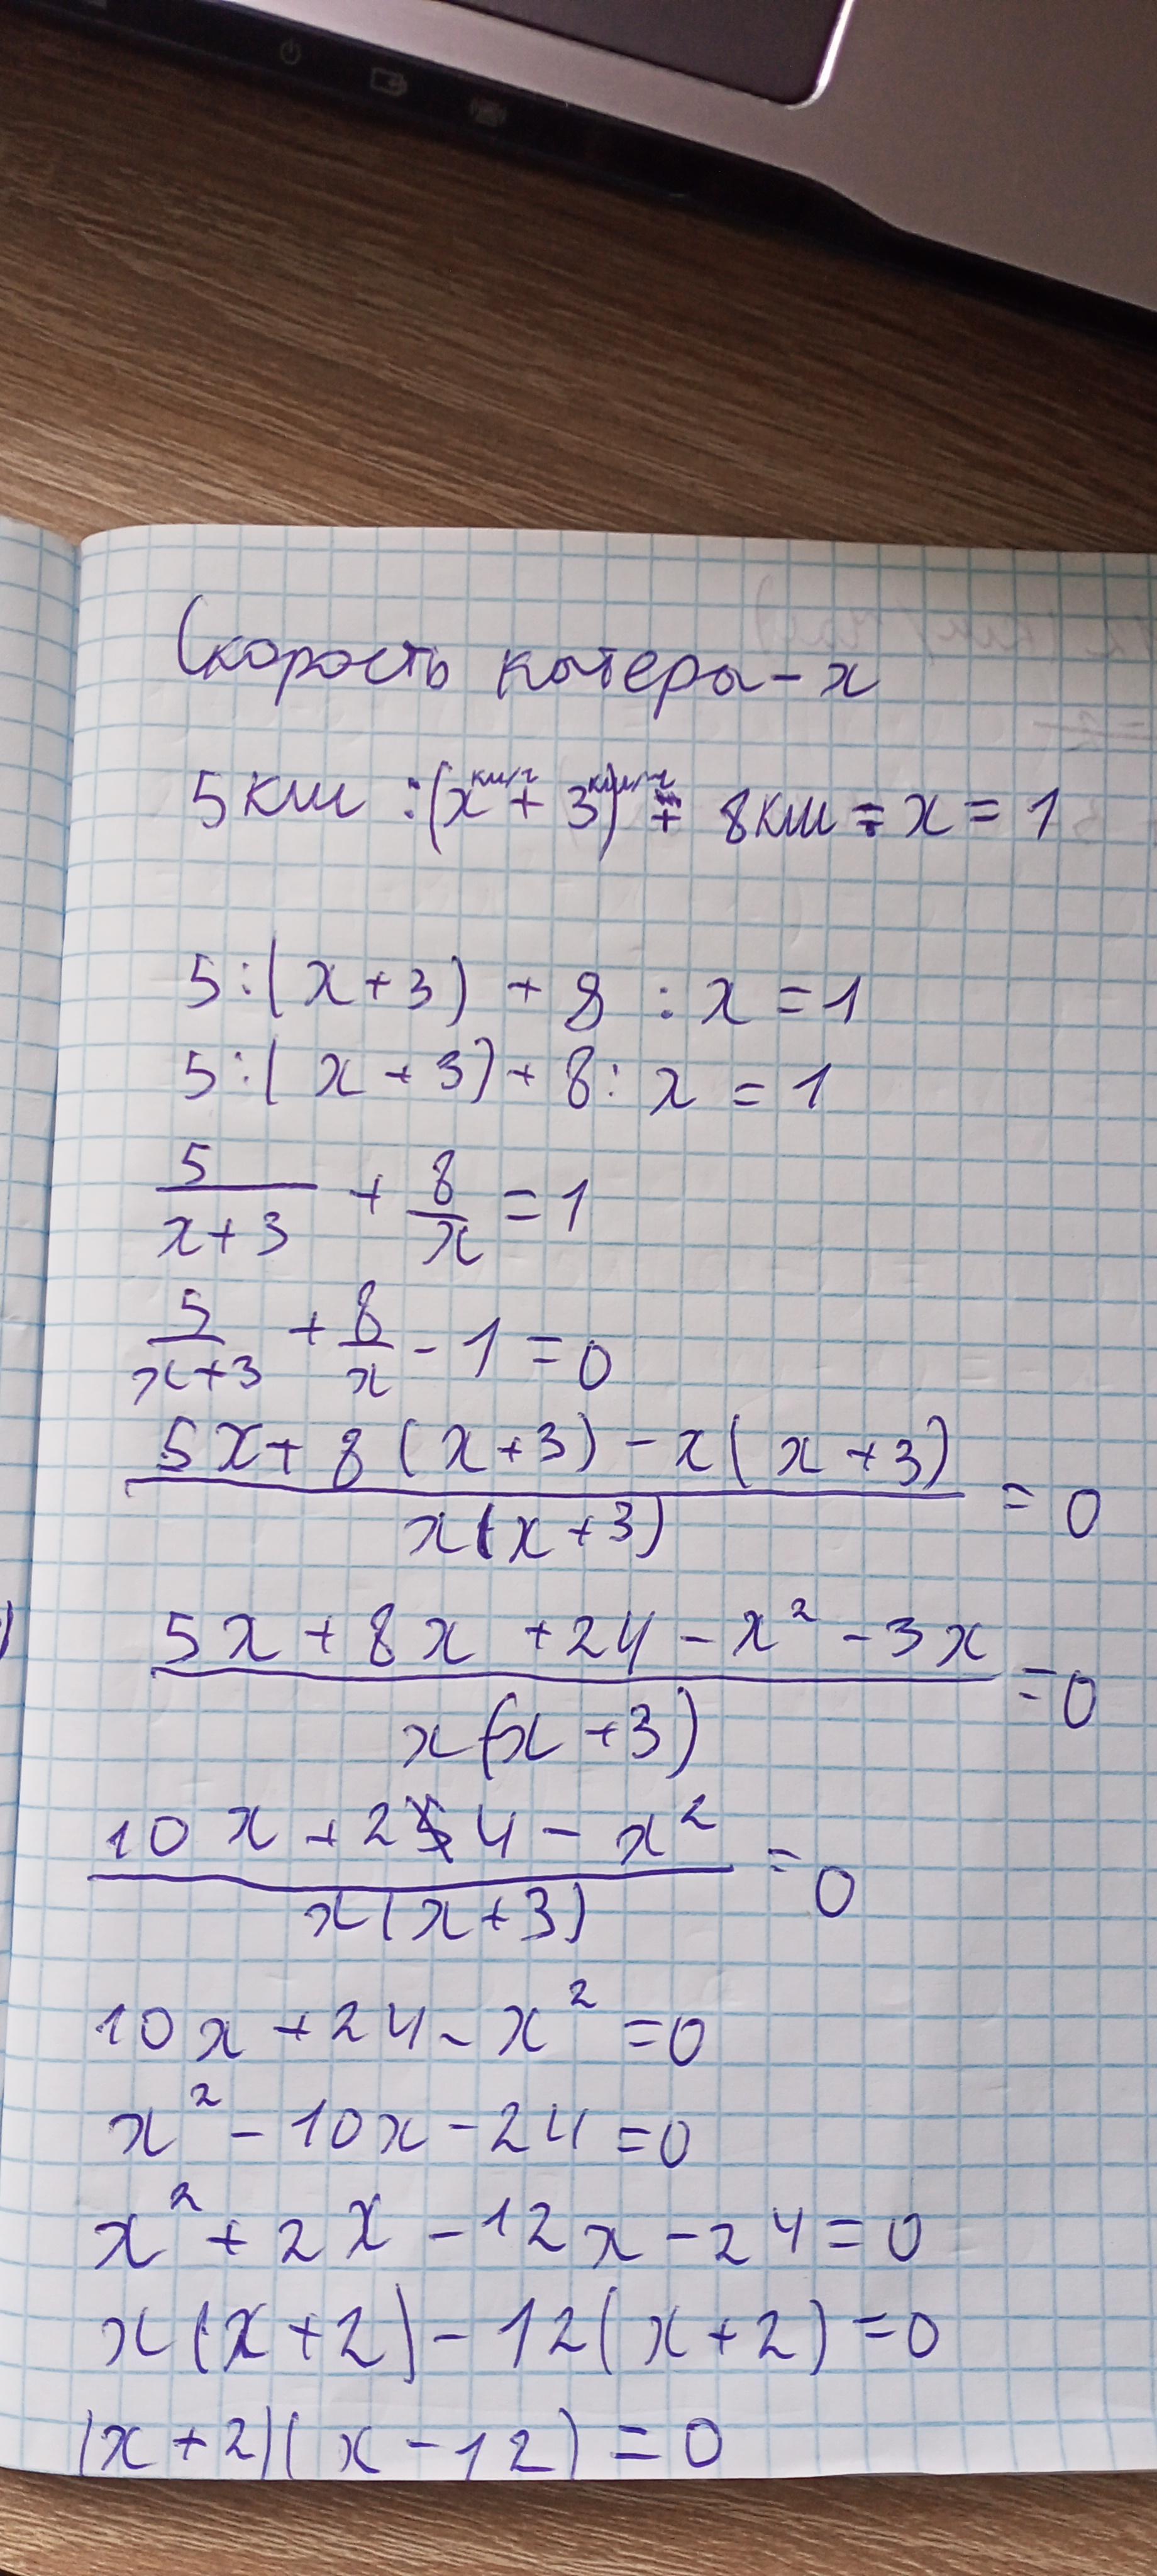 Скорость катера - x
5км : (x км/ч + 3 км/ч) + 8км : x = 1
5:(x+3) + 8 : x = 1
5:(x+3) + 8: x = 1
5/(x+3) + 8/x = 1
5/(x+3) + 8/x - 1 = 0
(5x + 8(x+3) - x(x+3))/(x(x+3)) = 0
(5x + 8x + 24 - x² - 3x)/(x(x+3)) = 0
(10x + 24 - x²)/(x(x+3)) = 0
10x + 24 - x² = 0
x² - 10x - 24 = 0
x² + 2x - 12x - 24 = 0
x(x+2) - 12(x+2) = 0
(x+2)(x-12) = 0